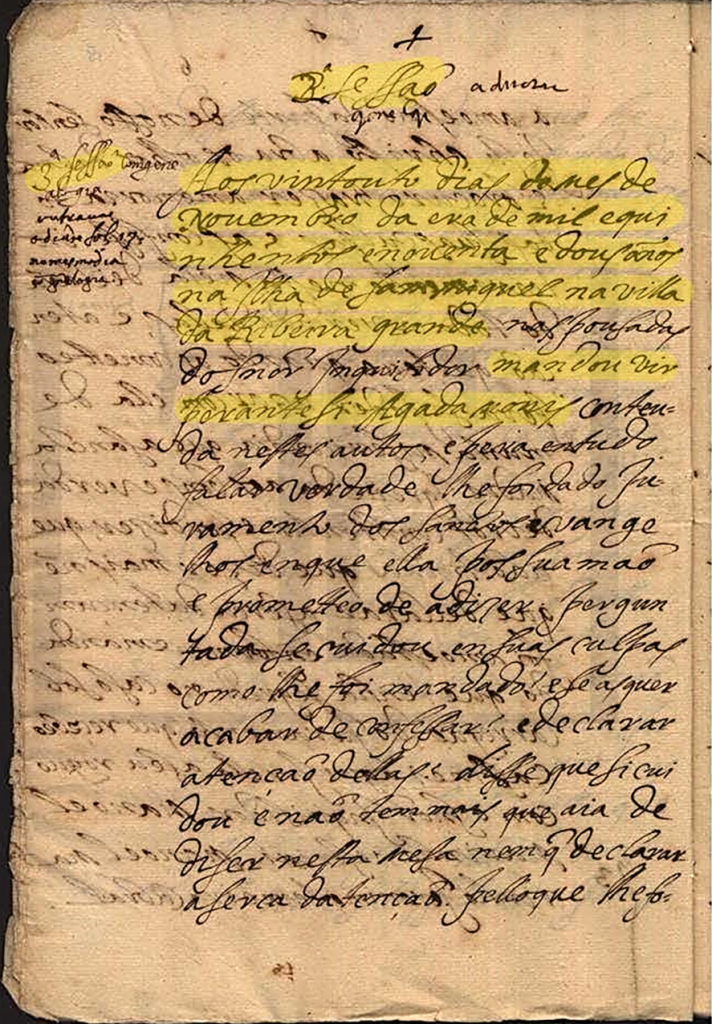 2ª sessaõ
3ª sessaõ
Aos vintouto dias do mes de
Novembro da era de mil e qui
nhentos e noventa e dous anos
na Ilha de sam miguel na villa
da Ribeira grande nas pousadas
do Snõr Inquisidor mandou vir
perante si Agada conteu-
da nestes autos, e pera em tudo
falar verdade lhe foi dado Ju-
ramento dos sanctos evange
lhos en que ella pos sua maõ
e prometteo de a dizer. Pergun
tada se cuidou en suas culpas
como lhe foi mandado e se as quer
acabar de confessar, e declarar
a tencaõ dellas. disse que si cui
dou e naõ tem mais que aia de
diser nesta mesa nem q̃ declarar
aserca da tençaõ. Pello que lhe fo-